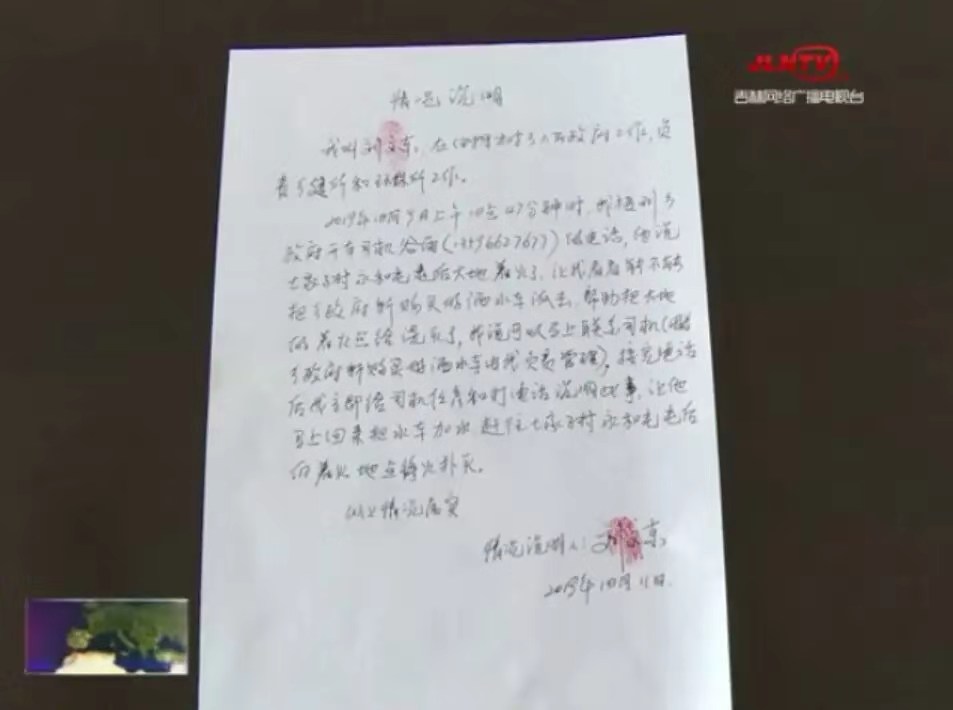 JLNTV
吉林网络广播电视台
情况说明
我叫刘 东,在 乡人民政府工作,负
责乡建所和环保所工作。
2019年10月9日上午10点47分钟时,我接到乡
政府干车司机 电话,他说
土家子村永和屯屯后大地着火了,让我看看能不能
把乡政府新购买的洒水车派去,帮助把大地
的着火点给浇灭了,我说可以马上联系司机(
乡政府新购买的洒水车由我负责管理)。接完电话
后我立即给司机任彦和打电话说明此事,让他
马上回来把水车加水赶往土家子村永和屯屯后
的着火地点将火扑灭。
以上情况属实
情况说明人:刘 东
2019年10月11日.